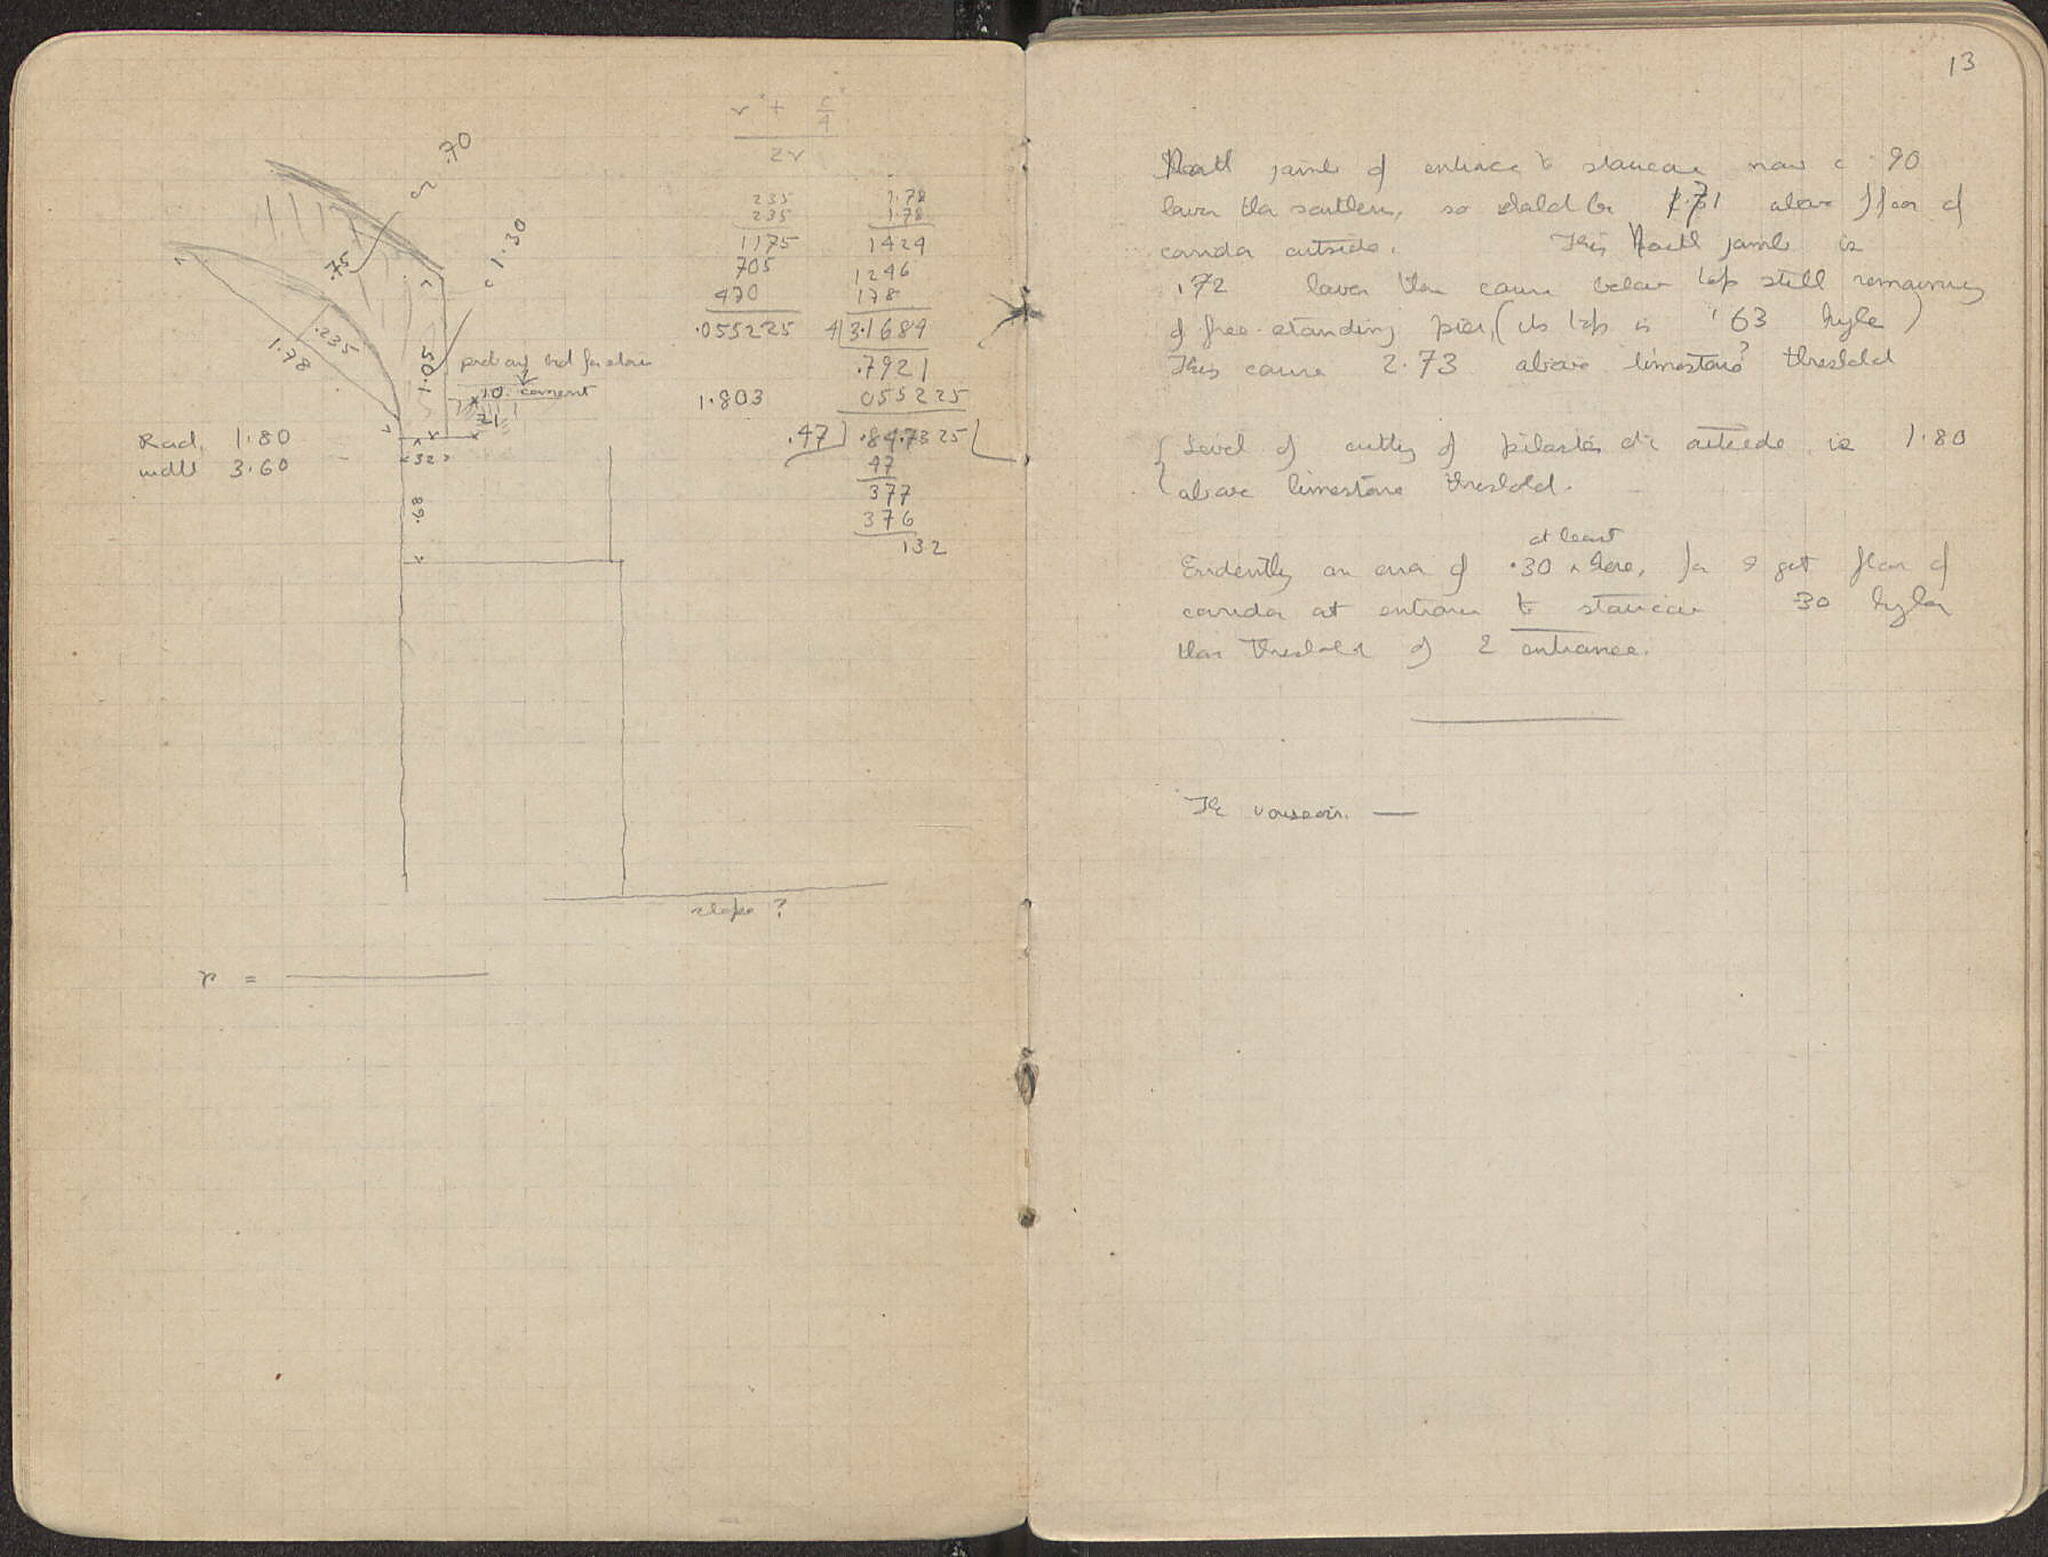 v² + c²/4
2v
c .70
c 1.30
.75
.235
1.78
1.05
prob any bed for stone
.10. cement
.21
Rad. 1.80
width 3.60
.32
.89
slope ?
r =
235
235
1175
705
470
.055225
1.803
1.78
1.78
1424
1246
178
4 3.1684
.7921
055225
.47 .847325
47
377
376
132
13
North jamb of entrance to staircase now c .90
lower than southern, so should be 1.71 above floor of
corridor outside. This North jamb is
.72 lower than course below top still remaining
of free-standing pier, (its top is .63 higher)
This course 2.73 above limestone? threshold
Level of cutting of pilasters outside is 1.80
above limestone threshold.
at least
Evidently an error of .30 ^ here, for I get floor of
corridor at entrance to staircase 30 higher
than threshold of 2 entrance.
The voussoirs. —